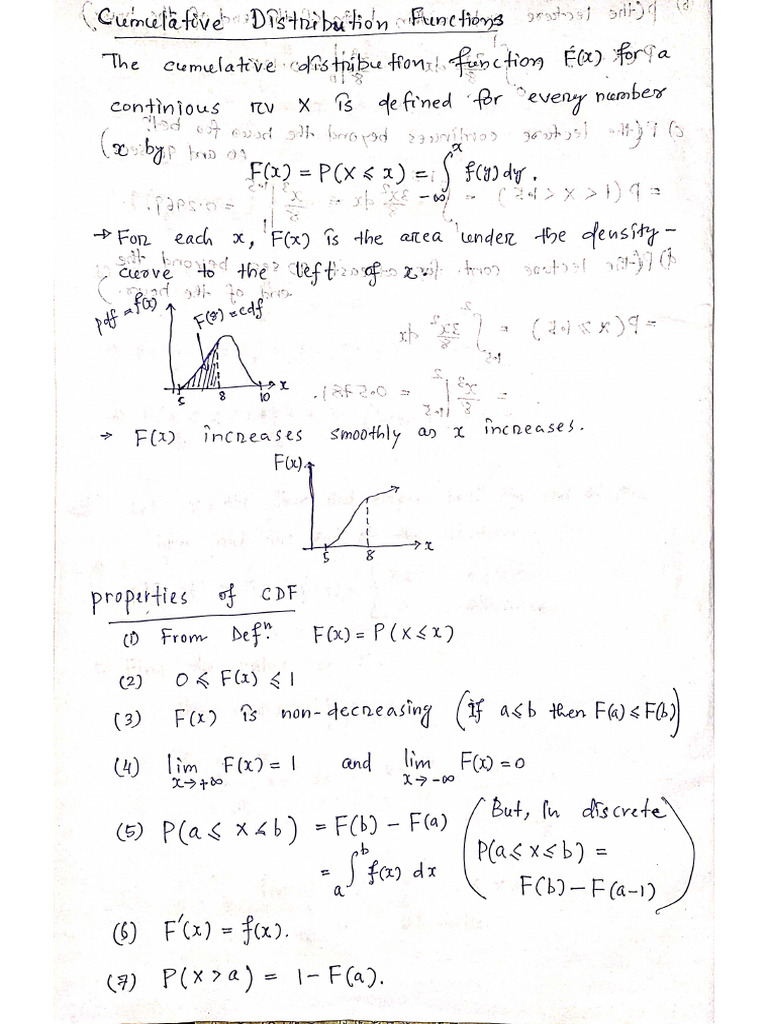 Cumulative Distribution Functions
The cumulative distribution function F(x) for a
continious rv X is defined for every number
x by
F(x) = P(X ≤ x) = ∫_{-∞}^{x} f(y) dy.
→ For each x, F(x) is the area under the density-
curve to the left of x.
pdf = f(x)
F(8) = cdf
x
5 8 10
→ F(x) increases smoothly as x increases.
F(x)
x
5 8
properties of CDF
(1) From Defⁿ. F(x) = P(X ≤ x)
(2) 0 ≤ F(x) ≤ 1
(3) F(x) is non-decreasing (If a ≤ b then F(a) ≤ F(b))
(4) lim_{x→+∞} F(x) = 1 and lim_{x→-∞} F(x) = 0
(5) P(a ≤ X ≤ b) = F(b) - F(a)
= ∫_{a}^{b} f(x) dx
(But, In discrete
P(a ≤ X ≤ b) =
F(b) - F(a-1))
(6) F'(x) = f(x).
(7) P(X > a) = 1 - F(a).